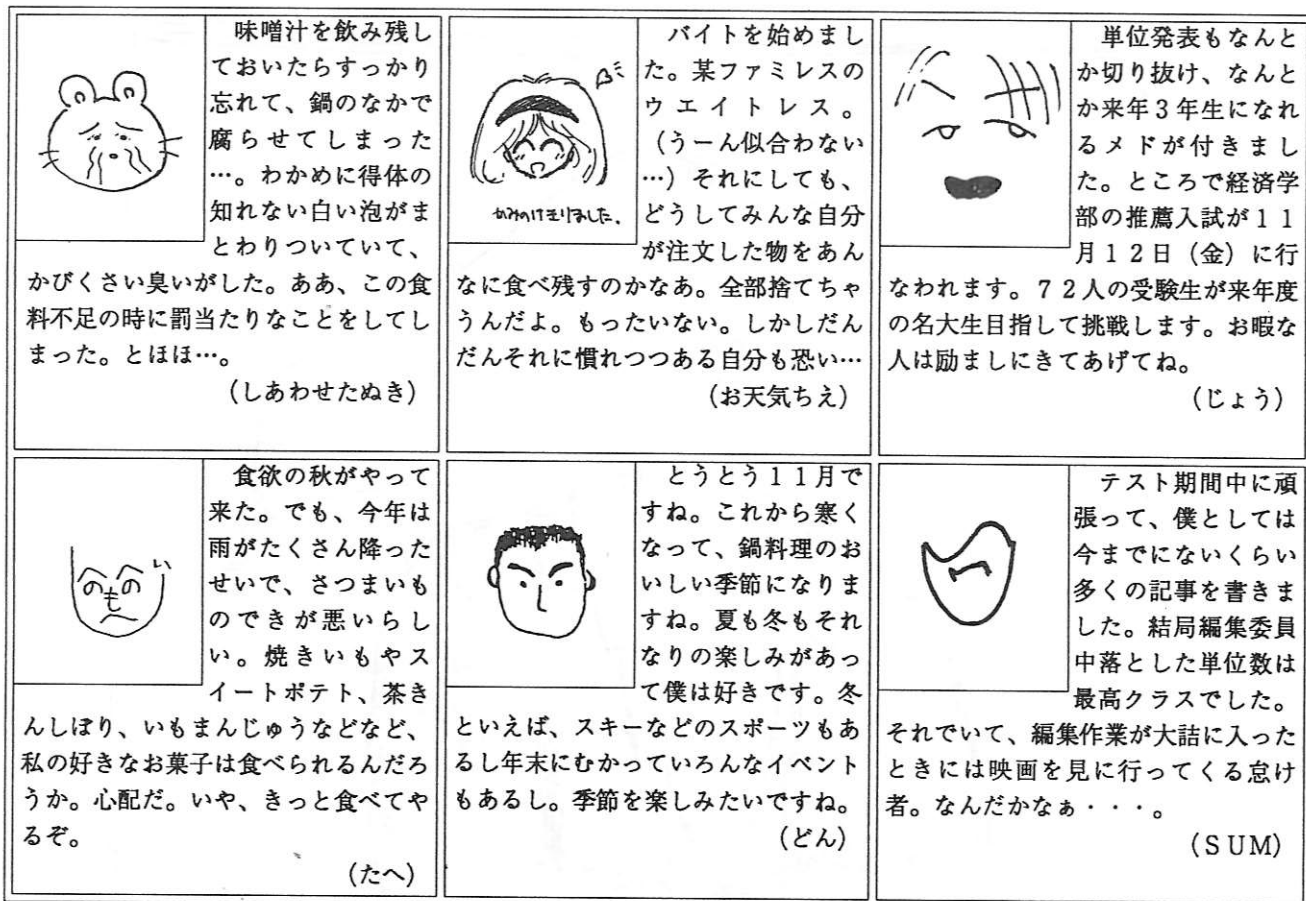 味噌汁を飲み残し
ておいたらすっかり
忘れて、鍋のなかで
腐らせてしまった
…。わかめに得体の
知れない白い泡がま
とわりついていて、
かびくさい臭いがした。ああ、この食
料不足の時に罰当たりなことをしてし
まった。とほほ…。
(しあわせたぬき)
かみのけ切りました。
バイトを始めまし
た。某ファミレスの
ウエイトレス。
(うーん似合わない
…)それにしても、
どうしてみんな自分
が注文した物をあん
なに食べ残すのかなあ。全部捨てちゃ
うんだよ。もったいない。しかしだん
だんそれに慣れつつある自分も恐い…
(お天気ちえ)
単位発表もなんと
か切り抜け、なんと
か来年3年生になれ
るメドが付きまし
た。ところで経済学
部の推薦入試が11
月12日(金)に行
なわれます。72人の受験生が来年度
の名大生目指して挑戦します。お暇な
人は励ましにきてあげてね。
(じょう)
へのへのもへじ
食欲の秋がやって
来た。でも、今年は
雨がたくさん降った
せいで、さつまいも
のできが悪いらし
い。焼きいもやス
イートポテト、茶き
んしぼり、いもまんじゅうなどなど、
私の好きなお菓子は食べられるんだろ
うか。心配だ。いや、きっと食べてや
るぞ。
(たへ)
とうとう11月で
すね。これから寒く
なって、鍋料理のお
いしい季節になりま
すね。夏も冬もそれ
なりの楽しみがあっ
て僕は好きです。冬
といえば、スキーなどのスポーツもあ
るし年末にむかっていろんなイベント
もあるし。季節を楽しみたいですね。
(どん)
テスト期間中に頑
張って、僕としては
今までにないくらい
多くの記事を書きま
した。結局編集委員
中落とした単位数は
最高クラスでした。
それでいて、編集作業が大詰に入った
ときには映画を見に行ってくる怠け
者。なんだかなぁ・・・。
(SUM)